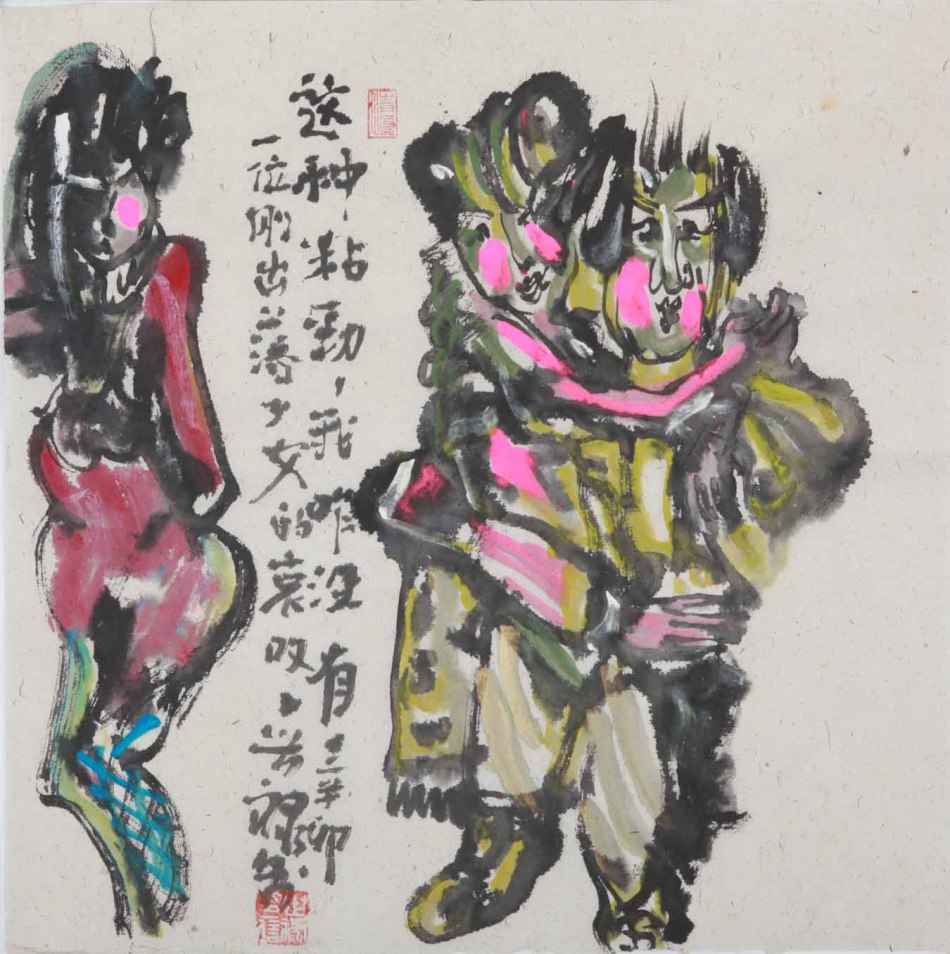 这种粘劲，我咋没有 辛卯
一位刚出落少女的哀叹